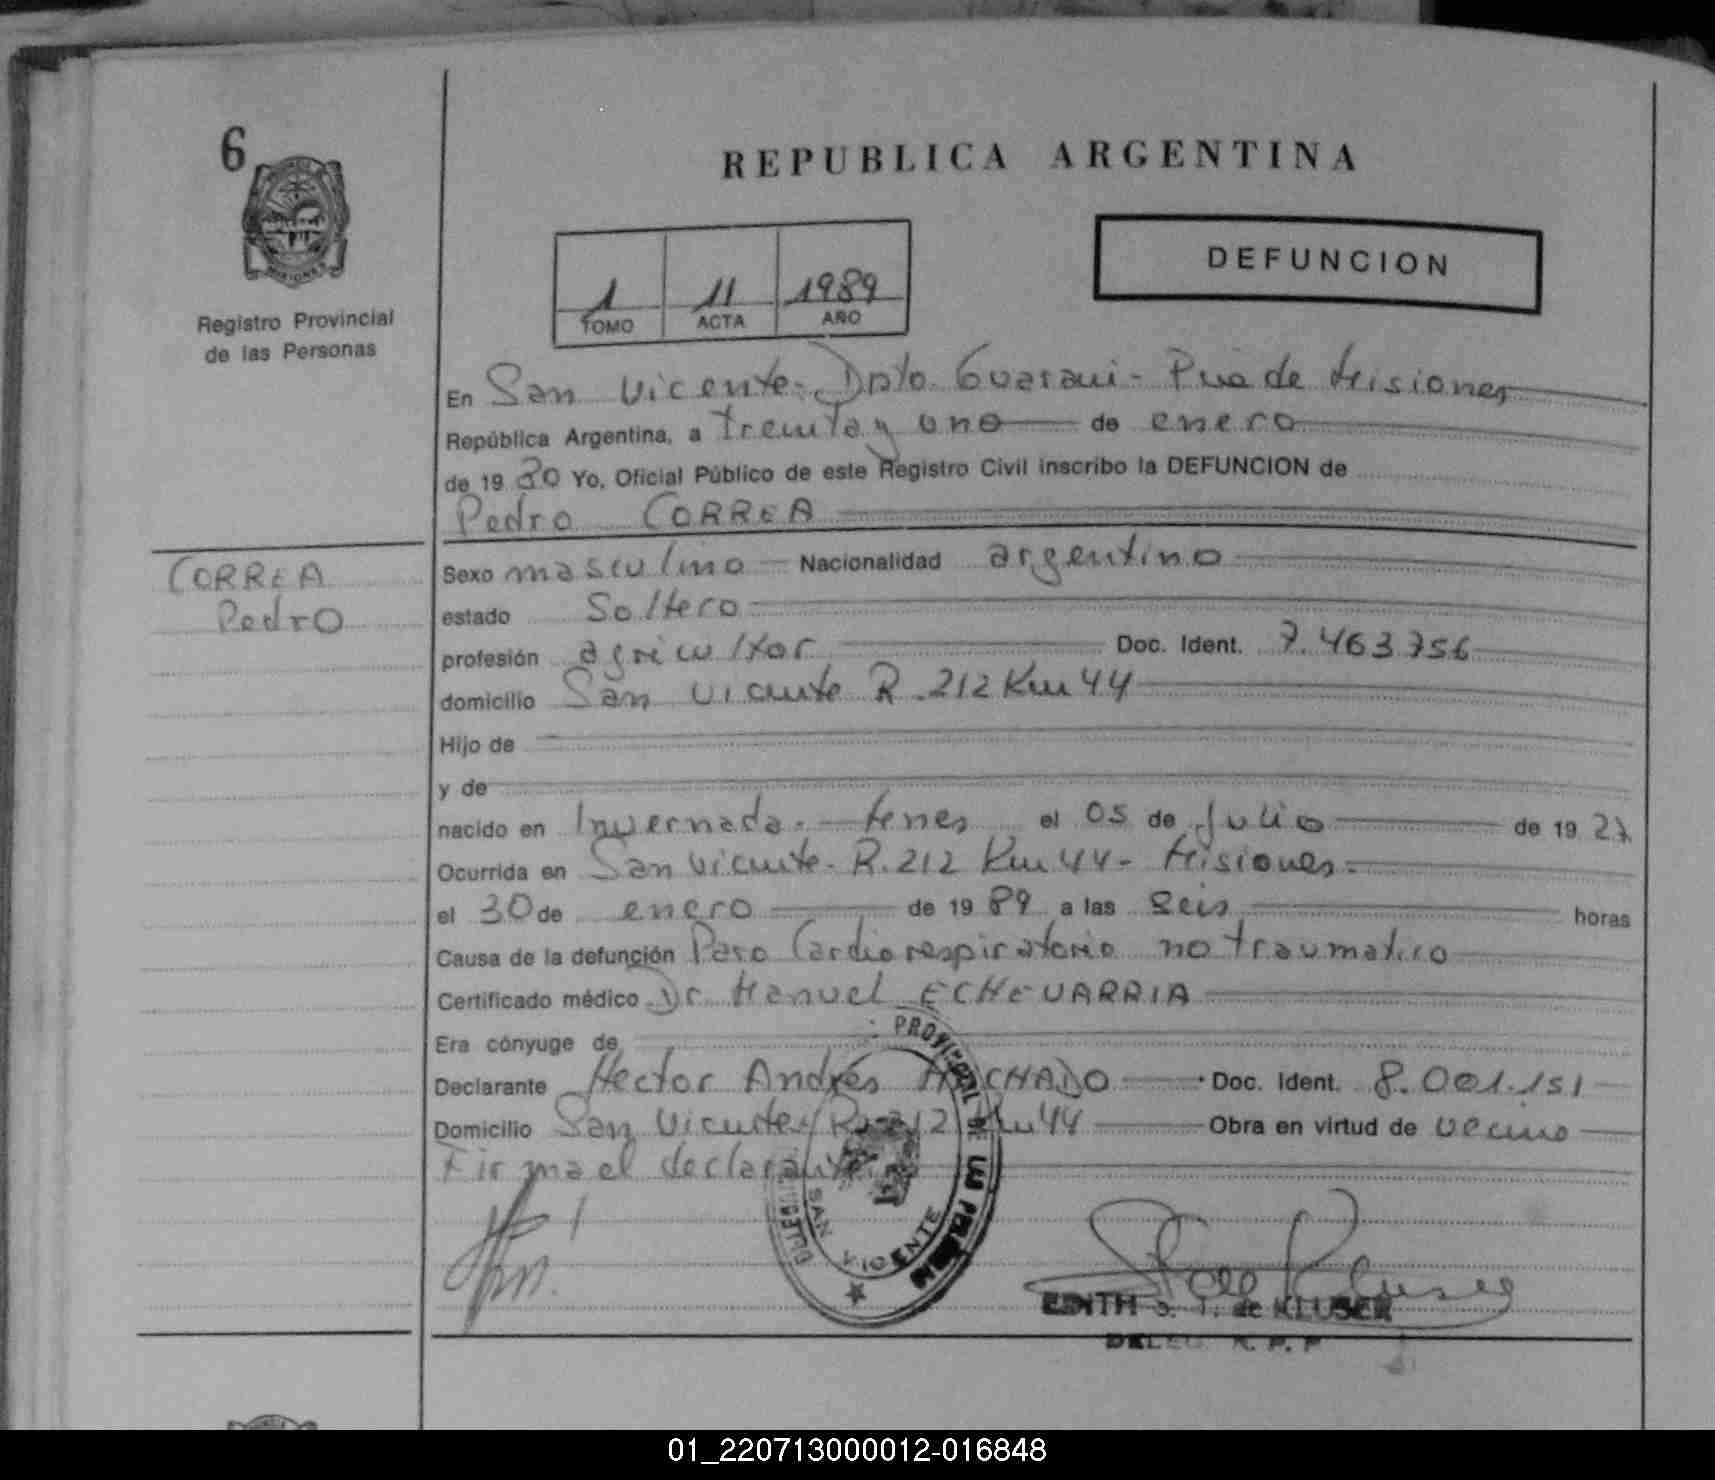 6
REPUBLICA ARGENTINA
DEFUNCION
1 11 1989
TOMO ACTA AÑO
Registro Provincial
de las Personas
En San Vicente - Dpto. Guarani - Pcia de Misiones
República Argentina, a treinta y uno de enero
de 19 Yo, Oficial Público de este Registro Civil inscribo la DEFUNCION de
Pedro CORREA
CORREA
Pedro
Sexo masculino Nacionalidad argentino
estado Soltero
profesión agricultor Doc. Ident. 7.463.756
domicilio San Vicente R.212 Km 44
Hijo de
y de
nacido en Invernada - el 05 de Julio de 19 27
Ocurrida en San Vicente - R.212 Km 44 - Misiones.
el 30 de enero de 19 89 a las seis horas
Causa de la defunción Paro Cardiorespiratorio no traumatico
Certificado médico Dr. Manuel ECHEVARRIA
Era cónyuge de
Declarante Hector Andrés MACHADO Doc. Ident. 8.001.151
Domicilio San Vicente R.212 Km 44 Obra en virtud de vecino
Firma el declarante.
PROVINCIAL DE LAS PERSONAS
SAN VICENTE
EDITH S. T. de KLUSER
DELEG. R. P. P
MISIONES
01_220713000012-016848